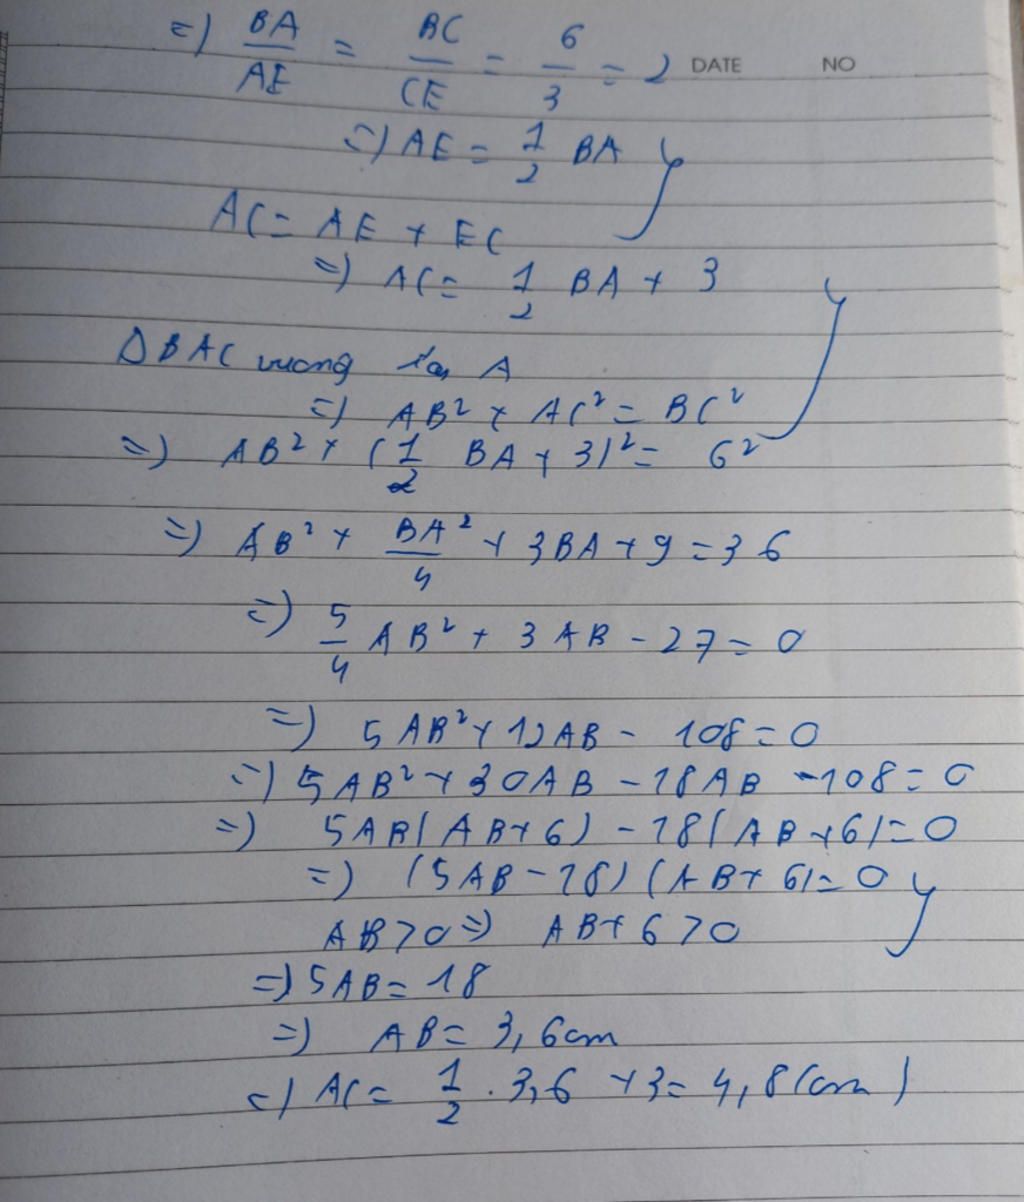 => BA/AE = BC/CE = 6/3 = 2 DATE NO
=> AE = 1/2 BA
AC = AE + EC
=> AC = 1/2 BA + 3
Δ BAC vuông tại A
=> AB² + AC² = BC²
=> AB² + (1/2 BA + 3)² = 6²
=> AB² + BA²/4 + 3BA + 9 = 36
=> 5/4 AB² + 3AB - 27 = 0
=> 5AB² + 12AB - 108 = 0
=> 5AB² + 30AB - 18AB - 108 = 0
=> 5AB(AB + 6) - 18(AB + 6) = 0
=> (5AB - 18)(AB + 6) = 0
AB > 0 => AB + 6 > 0
=> 5AB = 18
=> AB = 3,6cm
=> AC = 1/2 . 3,6 + 3 = 4,8 (cm)